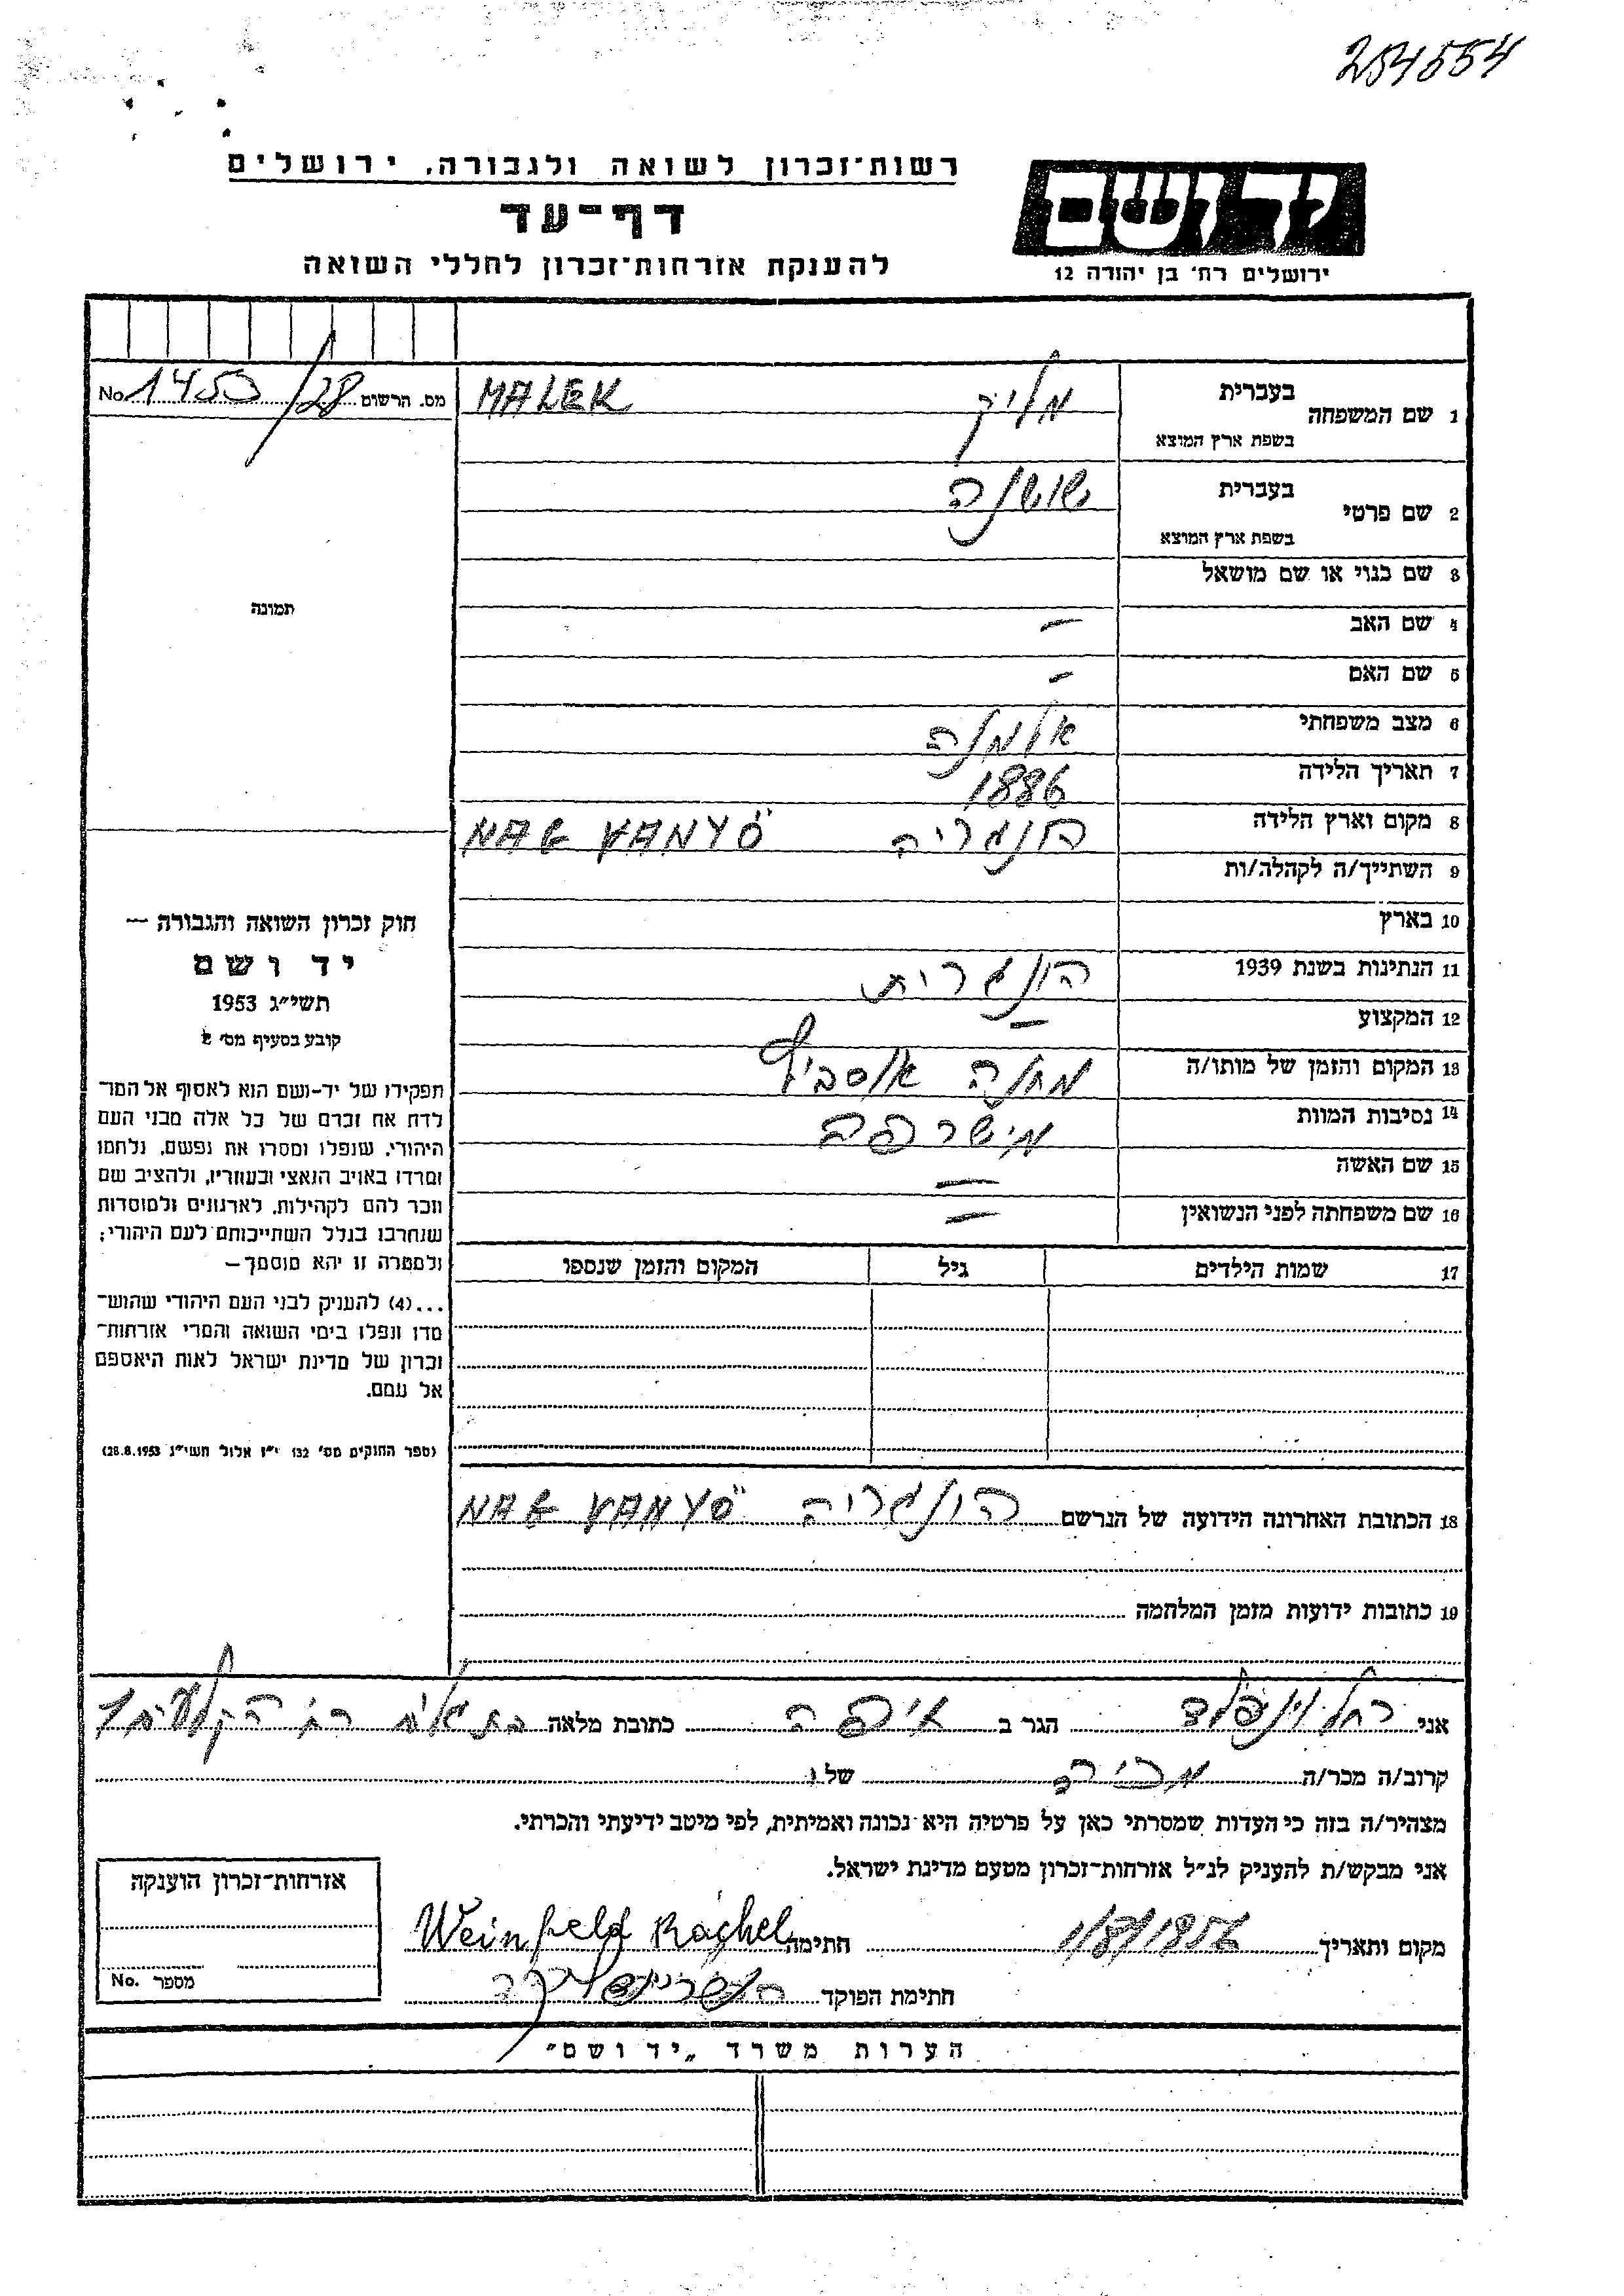 254554
רשות־זכרון לשואה ולגבורה, ירושלים
דף־עד
להענקת אזרחות־זכרון לחללי השואה
יד ושם
ירושלים רח׳ בן יהודה 12
מס. הרשום 1453/28 No
1 שם המשפחה בעברית מליק MALEK
בשפת ארץ המוצא
2 שם פרטי בעברית שושנה
בשפת ארץ המוצא
3 שם כנוי או שם מושאל
4 שם האב —
5 שם האם —
6 מצב משפחתי אלמנה
7 תאריך הלידה 1886
8 מקום וארץ הלידה הונגריה NAG KANYÖ
9 השתייך/ה לקהלה/ות
10 בארץ
11 הנתינות בשנת 1939 הונגרית
12 המקצוע —
13 המקום והזמן של מותו/ה מחנה
14 נסיבות המוות
15 שם האשה —
16 שם משפחתה לפני הנשואין —
17 שמות הילדים גיל המקום והזמן שנספו
18 הכתובת האחרונה הידועה של הנרשם הונגריה NAG KANYÖ
19 כתובות ידועות מזמן המלחמה
תמונה
חוק זכרון השואה והגבורה —
יד ושם
תשי״ג 1953
קובע בסעיף מס׳ 2
תפקידו של יד־ושם הוא לאסוף אל המו־
לדת את זכרם של כל אלה מבני העם
היהודי, שנפלו ומסרו את נפשם, נלחמו
ומרדו באויב הנאצי ובעוזריו, ולהציב שם
וזכר להם לקהילות, לארגונים ולמוסדות
שנחרבו בגלל השתייכותם לעם היהודי;
ולמטרה זו יהא מוסמך —
...(4) להעניק לבני העם היהודי שהוש־
מדו ונפלו בימי השואה והמרי אזרחות־
זכרון של מדינת ישראל לאות היאספם
אל עמם.
(ספר החוקים מס׳ 132 י״ז אלול תשי״ג 28.8.1953)
אני רחל וינפלד הגר ב חיפה כתובת מלאה
קרוב/ה מכר/ה מכירה של
מצהיר/ה בזה כי העדות שמסרתי כאן על פרטיה היא נכונה ואמיתית, לפי מיטב ידיעתי והכרתי.
אני מבקש/ת להעניק לנ״ל אזרחות־זכרון מטעם מדינת ישראל.
מקום ותאריך 1/8/1956 חתימה Weinfeld Rachel
חתימת הפוקד
אזרחות־זכרון הוענקה
מספר No.
הערות משרד „יד ושם״